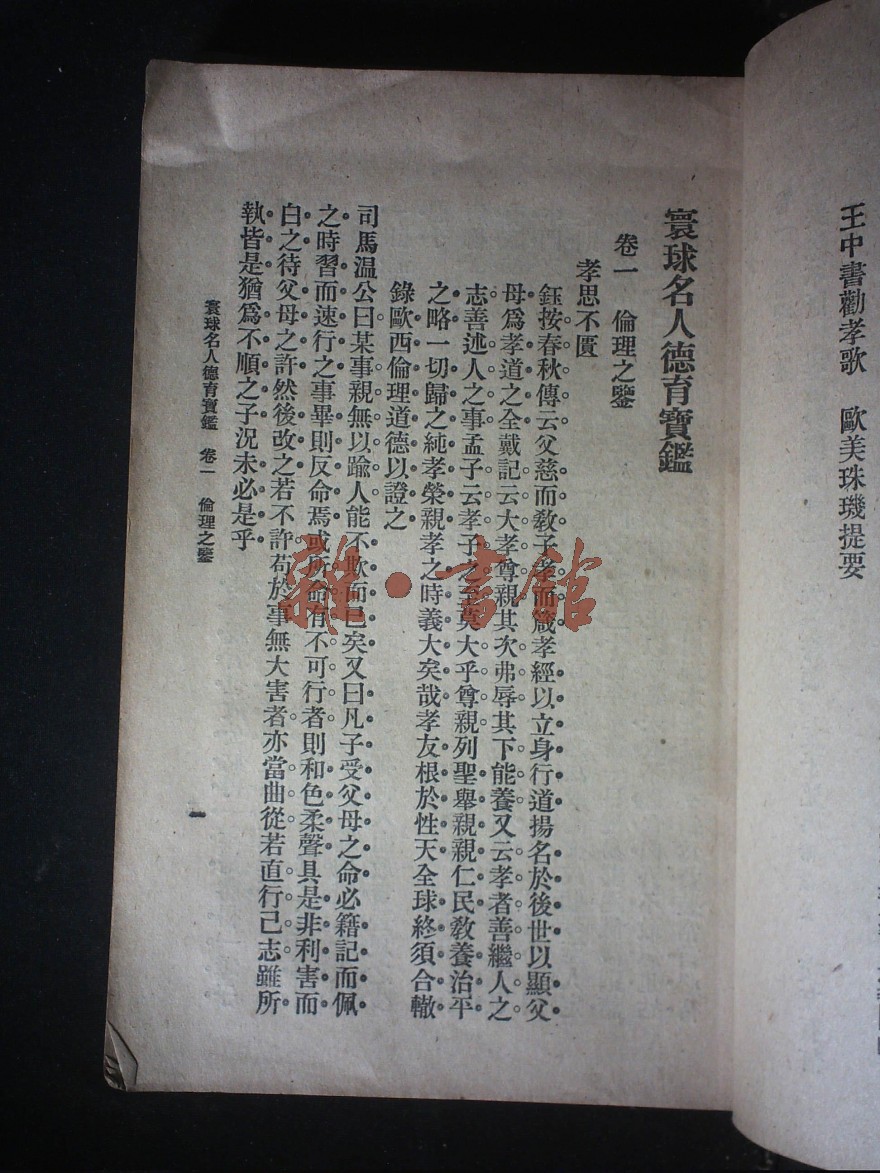 王中書勸孝歌　歐美珠璣提要
寰球名人德育寶鑑
卷一　倫理之鑒
孝思不匱
鈺按春秋傳云父慈而敎子孝而箴孝經以立身行道揚名於後世以顯父
母爲孝道之全戴記云大孝尊親其次弗辱其下能養又云孝者善繼人之
志善述人之事孟子云孝子之至莫大乎尊親列聖舉親親仁民敎養治平
之略一切歸之純孝榮親孝之時義大矣哉孝友根於性天全球終須合轍
錄歐西倫理道德以證之
司馬温公曰某事親無以踰人能不欺而已矣又曰凡子受父母之命必籍記而佩
之時習而速行之事畢則反命焉或所命有不可行者則和色柔聲具是非利害而
白之待父母之許然後改之若不許苟於事無大害者亦當曲從若直行己志雖所
執皆是猶爲不順之子況未必是乎
寰球名人德育寶鑑　卷一　倫理之鑒
一
雜·書館